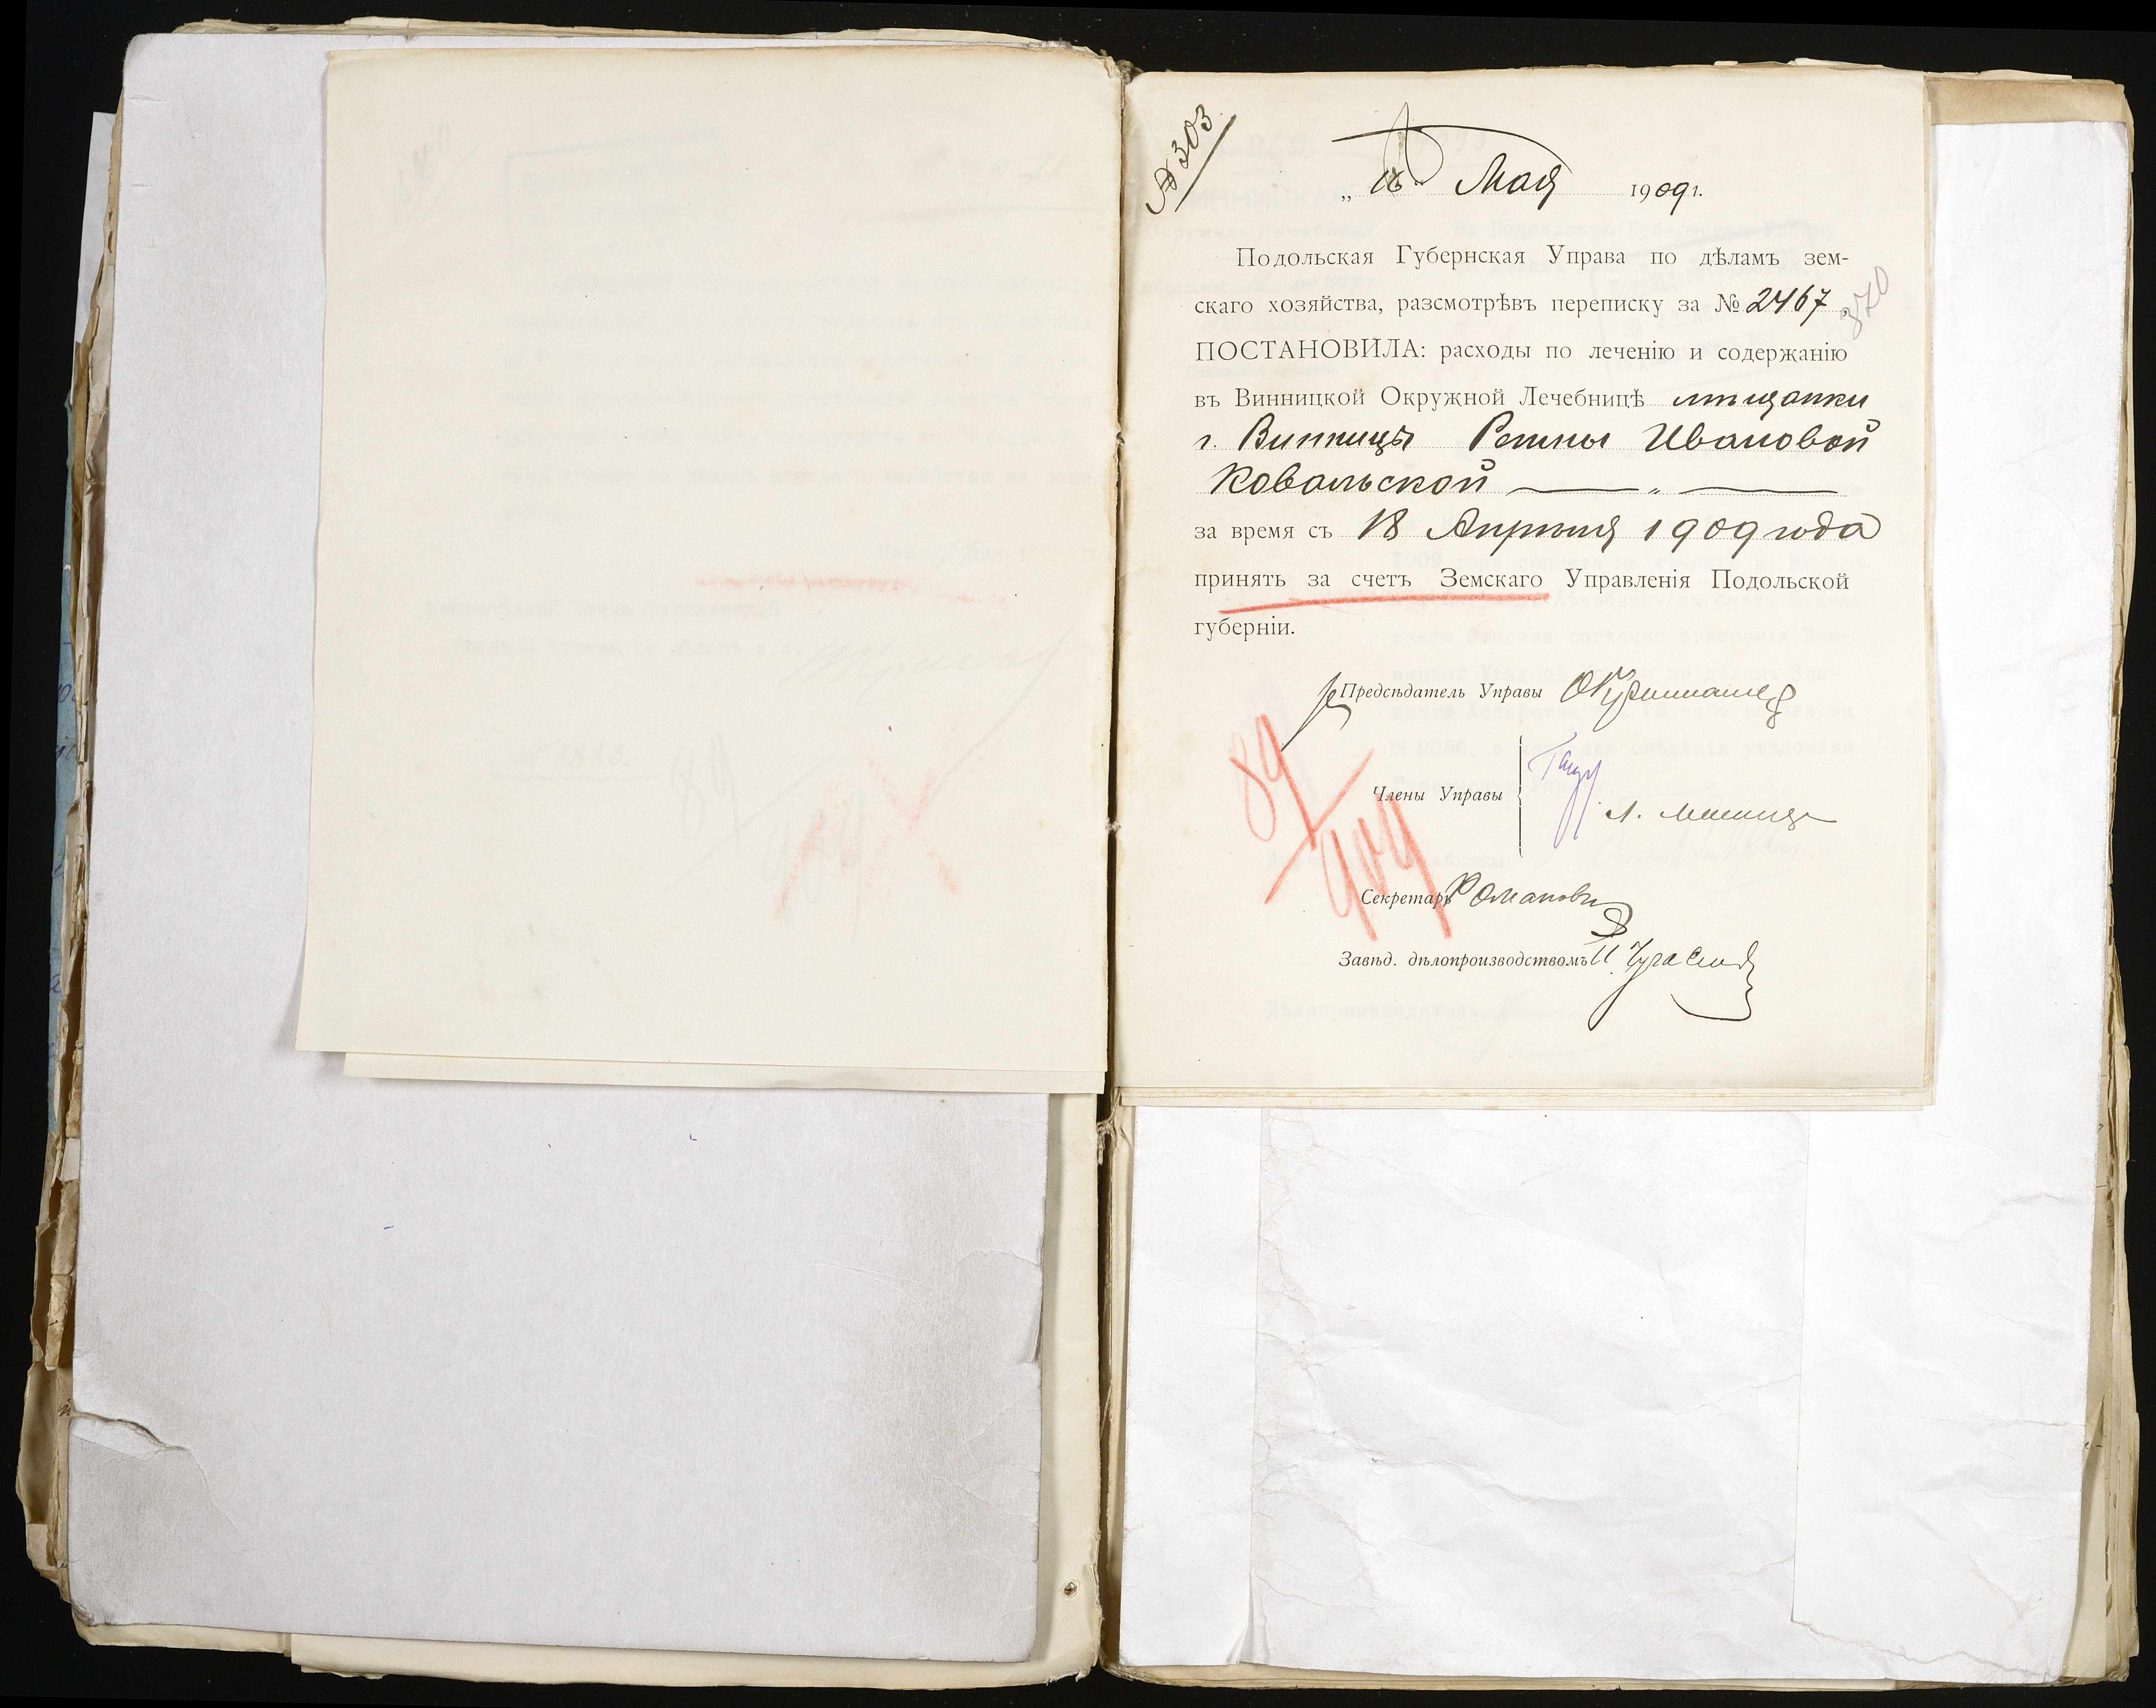 № 303
„16“ Мая 1909 г.
Подольская Губернская Управа по дѣламъ зем-
скаго хозяйства, разсмотрѣвъ переписку за № 2467,
370
ПОСТАНОВИЛА: расходы по леченію и содержанію
въ Винницкой Окружной Лечебницѣ мѣщанки
г. Винницы Ивановой
Ковальской — „ —
за время съ 18 Апрѣля 1909 года
принять за счетъ Земскаго Управленія Подольской
губерніи.
Предсѣдатель Управы
Члены Управы
89/909
Секретарь Романов
Завѣд. дѣлопроизводствомъ